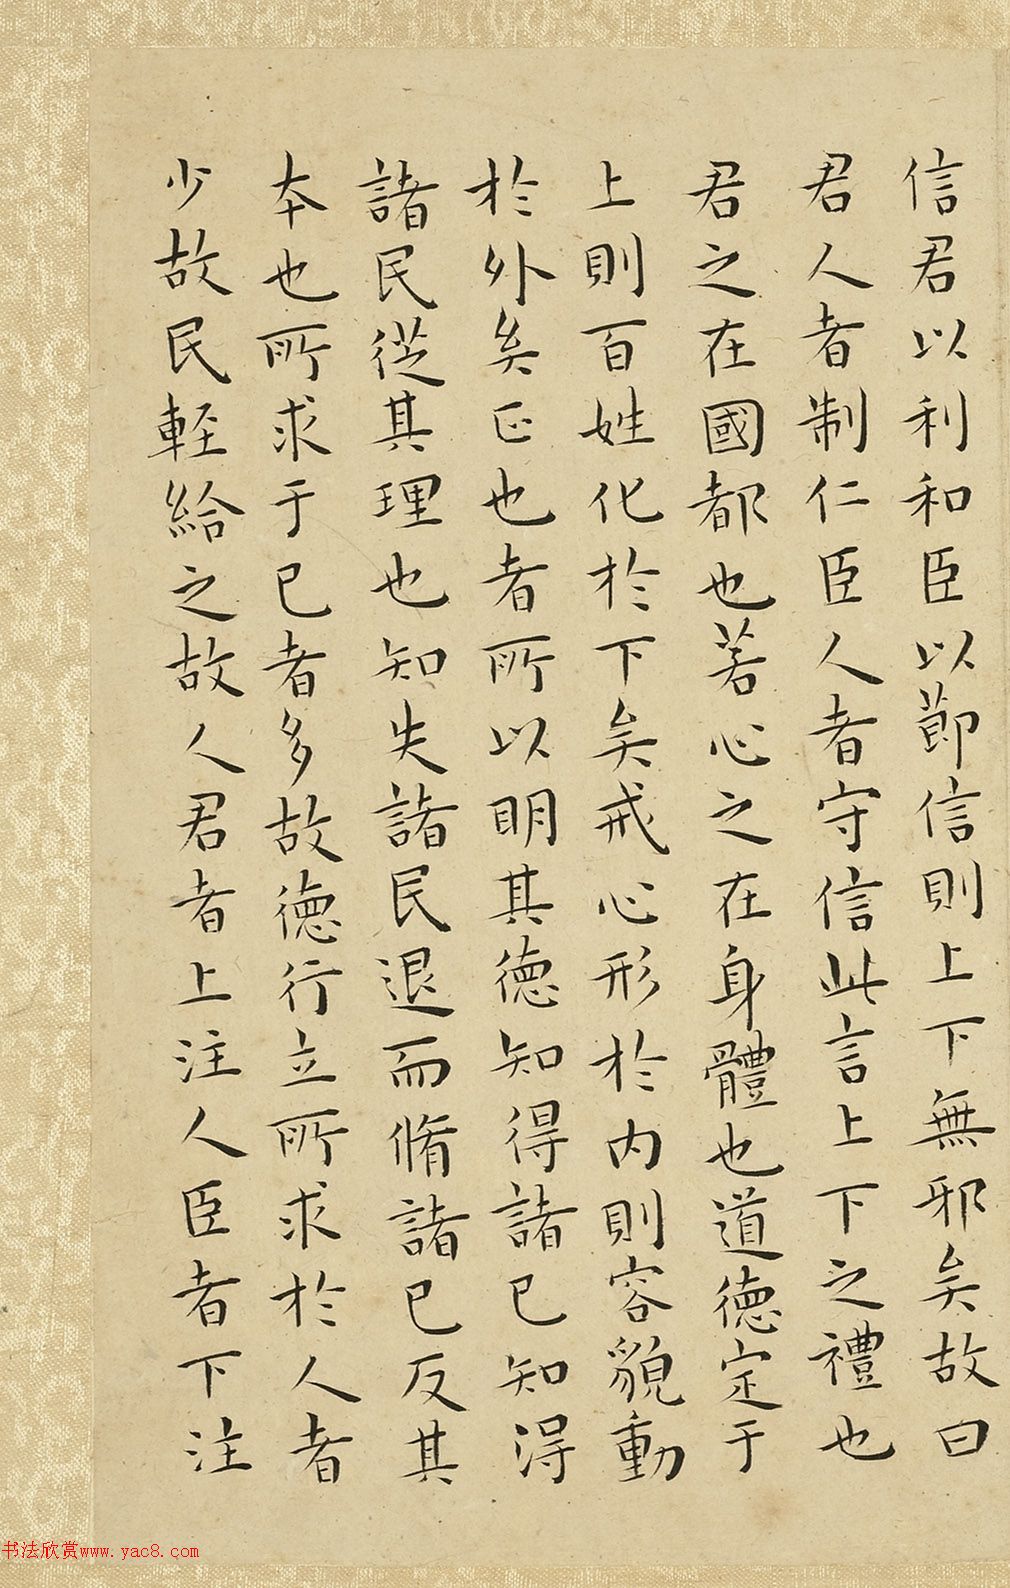 信君以利和臣以節信則上下無邪矣故曰
君人者制仁臣人者守信此言上下之禮也
君之在國都也若心之在身體也道德定于
上則百姓化於下矣戒心形於内則容貌動
於外矣正也者所以明其德知得諸已知得
諸民從其理也知失諸民退而脩諸已反其
本也所求于已者多故德行立所求於人者
少故民輕給之故人君者上注人臣者下注
书法欣赏www.yac8.com